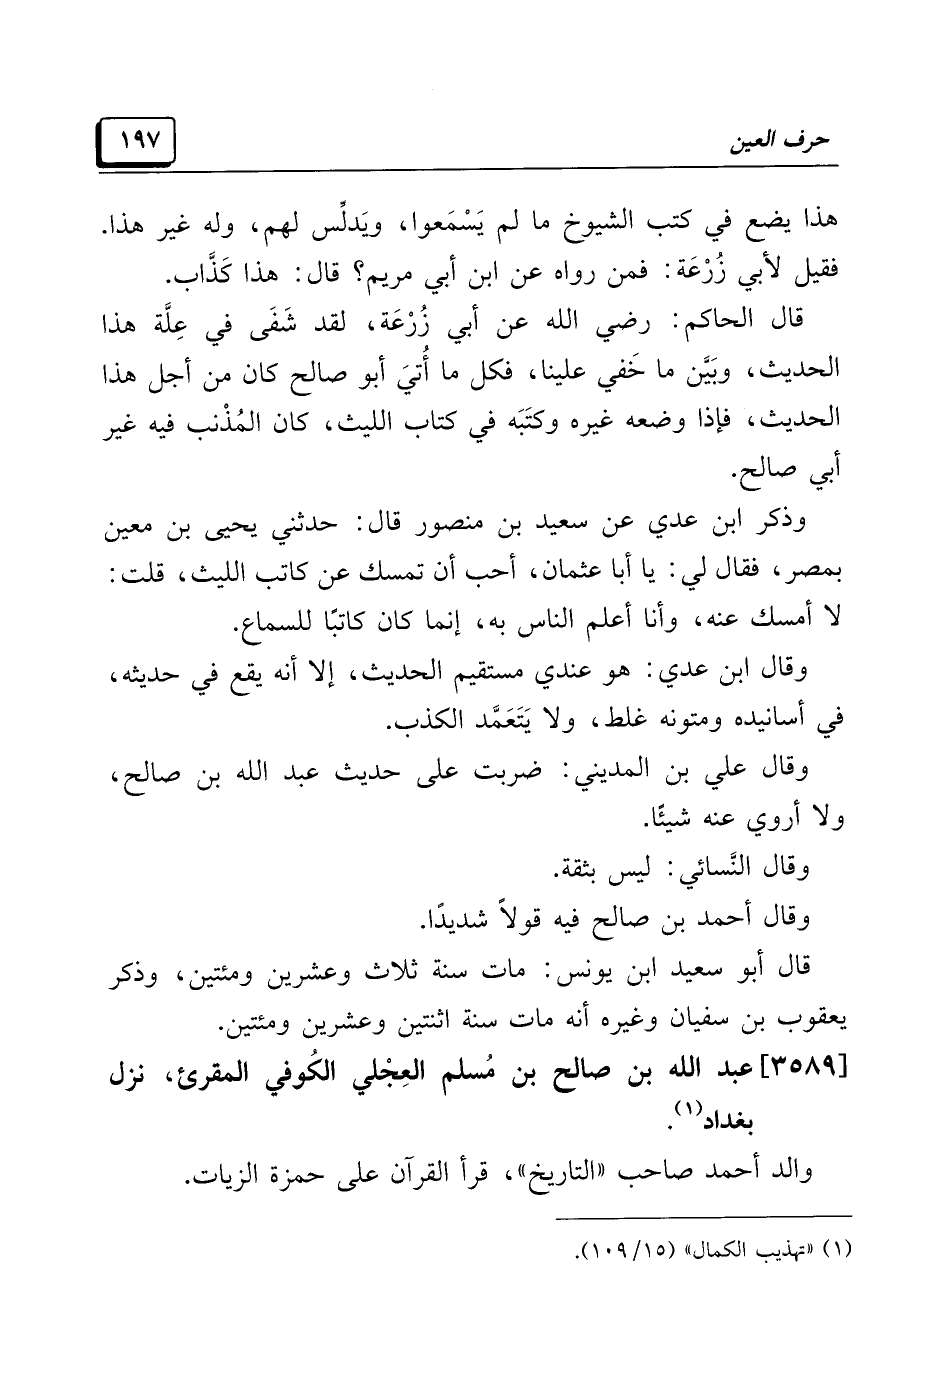 حرف العين
١٩٧
هذا يضع في كتب الشيوخ ما لم يَسْمَعوا، ويَدلِّس لهم، وله غير هذا.
فقيل لأبي زُرْعَة: فمن رواه عن ابن أبي مريم؟ قال: هذا كَذَّاب.
قال الحاكم: رضي الله عن أبي زُرْعَة، لقد شَفَى في عِلَّة هذا
الحديث، وبَيَّن ما خَفي علينا، فكل ما أُتيَ أبو صالح كان من أجل هذا
الحديث، فإذا وضعه غيره وكتَبَه في كتاب الليث، كان المُذْنب فيه غير
أبي صالح.
وذكر ابن عدي عن سعيد بن منصور قال: حدثني يحيى بن معين
بمصر، فقال لي: يا أبا عثمان، أحب أن تمسك عن كاتب الليث، قلت:
لا أمسك عنه، وأنا أعلم الناس به، إنما كان كاتبًا للسماع.
وقال ابن عدي: هو عندي مستقيم الحديث، إلا أنه يقع في حديثه،
في أسانيده ومتونه غلط، ولا يَتَعَمَّد الكذب.
وقال علي بن المديني: ضربت على حديث عبد الله بن صالح،
ولا أروي عنه شيئًا.
وقال النَّسائي: ليس بثقة.
وقال أحمد بن صالح فيه قولاً شديدًا.
قال أبو سعيد ابن يونس: مات سنة ثلاث وعشرين ومئتين، وذكر
يعقوب بن سفيان وغيره أنه مات سنة اثنتين وعشرين ومئتين.
[٣٥٨٩] عبد الله بن صالح بن مُسلم العِجْلي الكُوفي المقرئ، نزل
بغداد(١).
والد أحمد صاحب «التاريخ»، قرأ القرآن على حمزة الزيات.
(١) «تهذيب الكمال» (١٥/١٠٩).